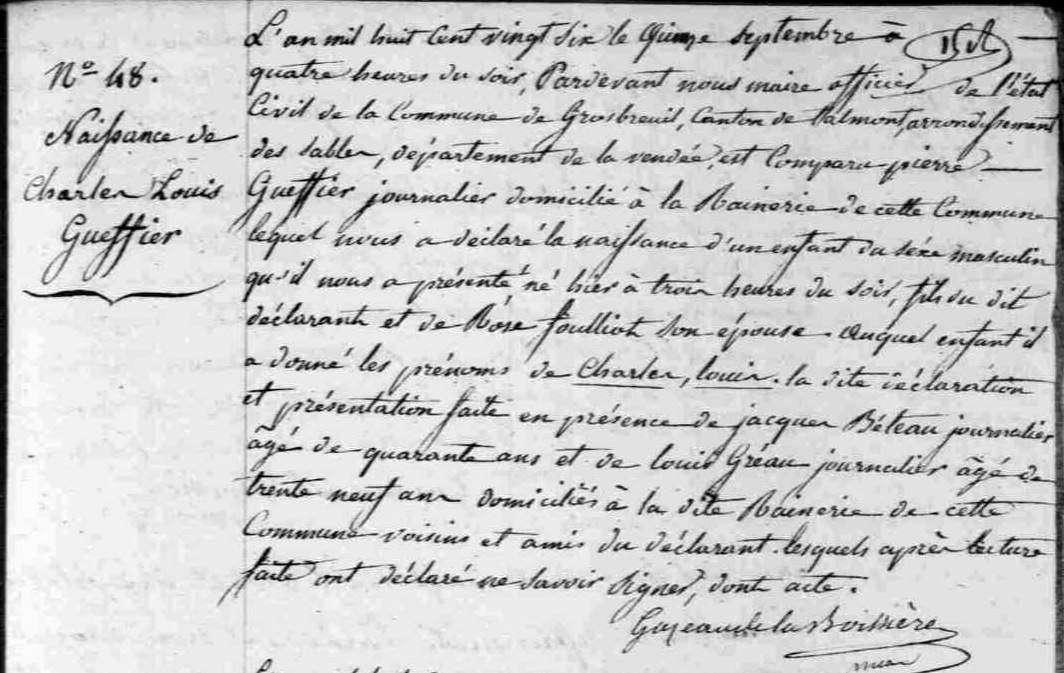 L'an mil huit Cent vingt Six le Quinze Septembre à
quatre heures du soir, Pardevant nous maire officier de l'état
Civil de la Commune de Grosbreuil, Canton de talmont, arrondissement
des Sables, département de la vendée, est Comparu pierre
Gueffier journalier domicilié à la Rainerie de cette Commune
lequel nous a déclaré la naissance d'un enfant du séxe masculin
qu'il nous a présenté né hier à trois heures du soir, fils du dit
déclarant et de Rose foullion son épouse. auquel enfant il
a donné les prénoms de Charles, louis. la dite déclaration
et présentation faite en présence de jacques Béteau journalier
âgé de quarante ans et de louis Gréau journalier âgé de
trente neuf ans domiciliés à la dite Rainerie de cette
Commune voisins et amis du déclarant. lesquels après lecture
faite ont déclaré ne Savoir Signer, dont acte.
Gazeau de la Boissière
maire
N° 48.
Naissance de
Charles Louis
Gueffier